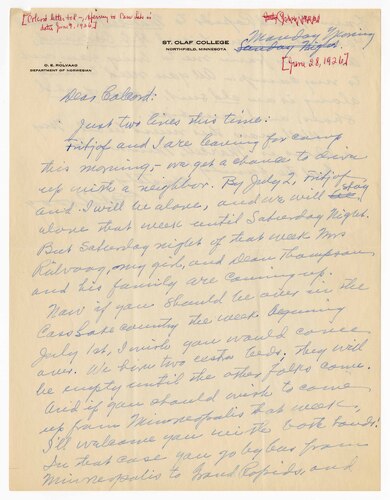 [Colcord letter
date June 9, 1926]
ST. OLAF COLLEGE
NORTHFIELD, MINNESOTA
Monday Morning
Sunday Night
[June 28, 1926]
O. E. ROLVAAG
DEPARTMENT OF NORWEGIAN
Dear Colcord:
Just two lines this time:
Fritjof and I are leaving for camp
this morning,- we get a chance to drive
up with a neighbor. By July 2, Fritjof
and I will be alone, and we will stay
alone that week until Saturday Night.
But Saturday night of that week Mrs
Rölvaag, my girl, and Dean Thompson
and his family are coming up.
Now if you should be over in the
Cass Lake country the week beginning
July 1st, I wish you would come
over. We have two extra beds; they will
be empty until the other folks come.
And if you should wish to come
up from Minneapolis that week,
I'll welcome you with both hands.
In that case you go by bus from
Minneapolis to Grand Rapids, and